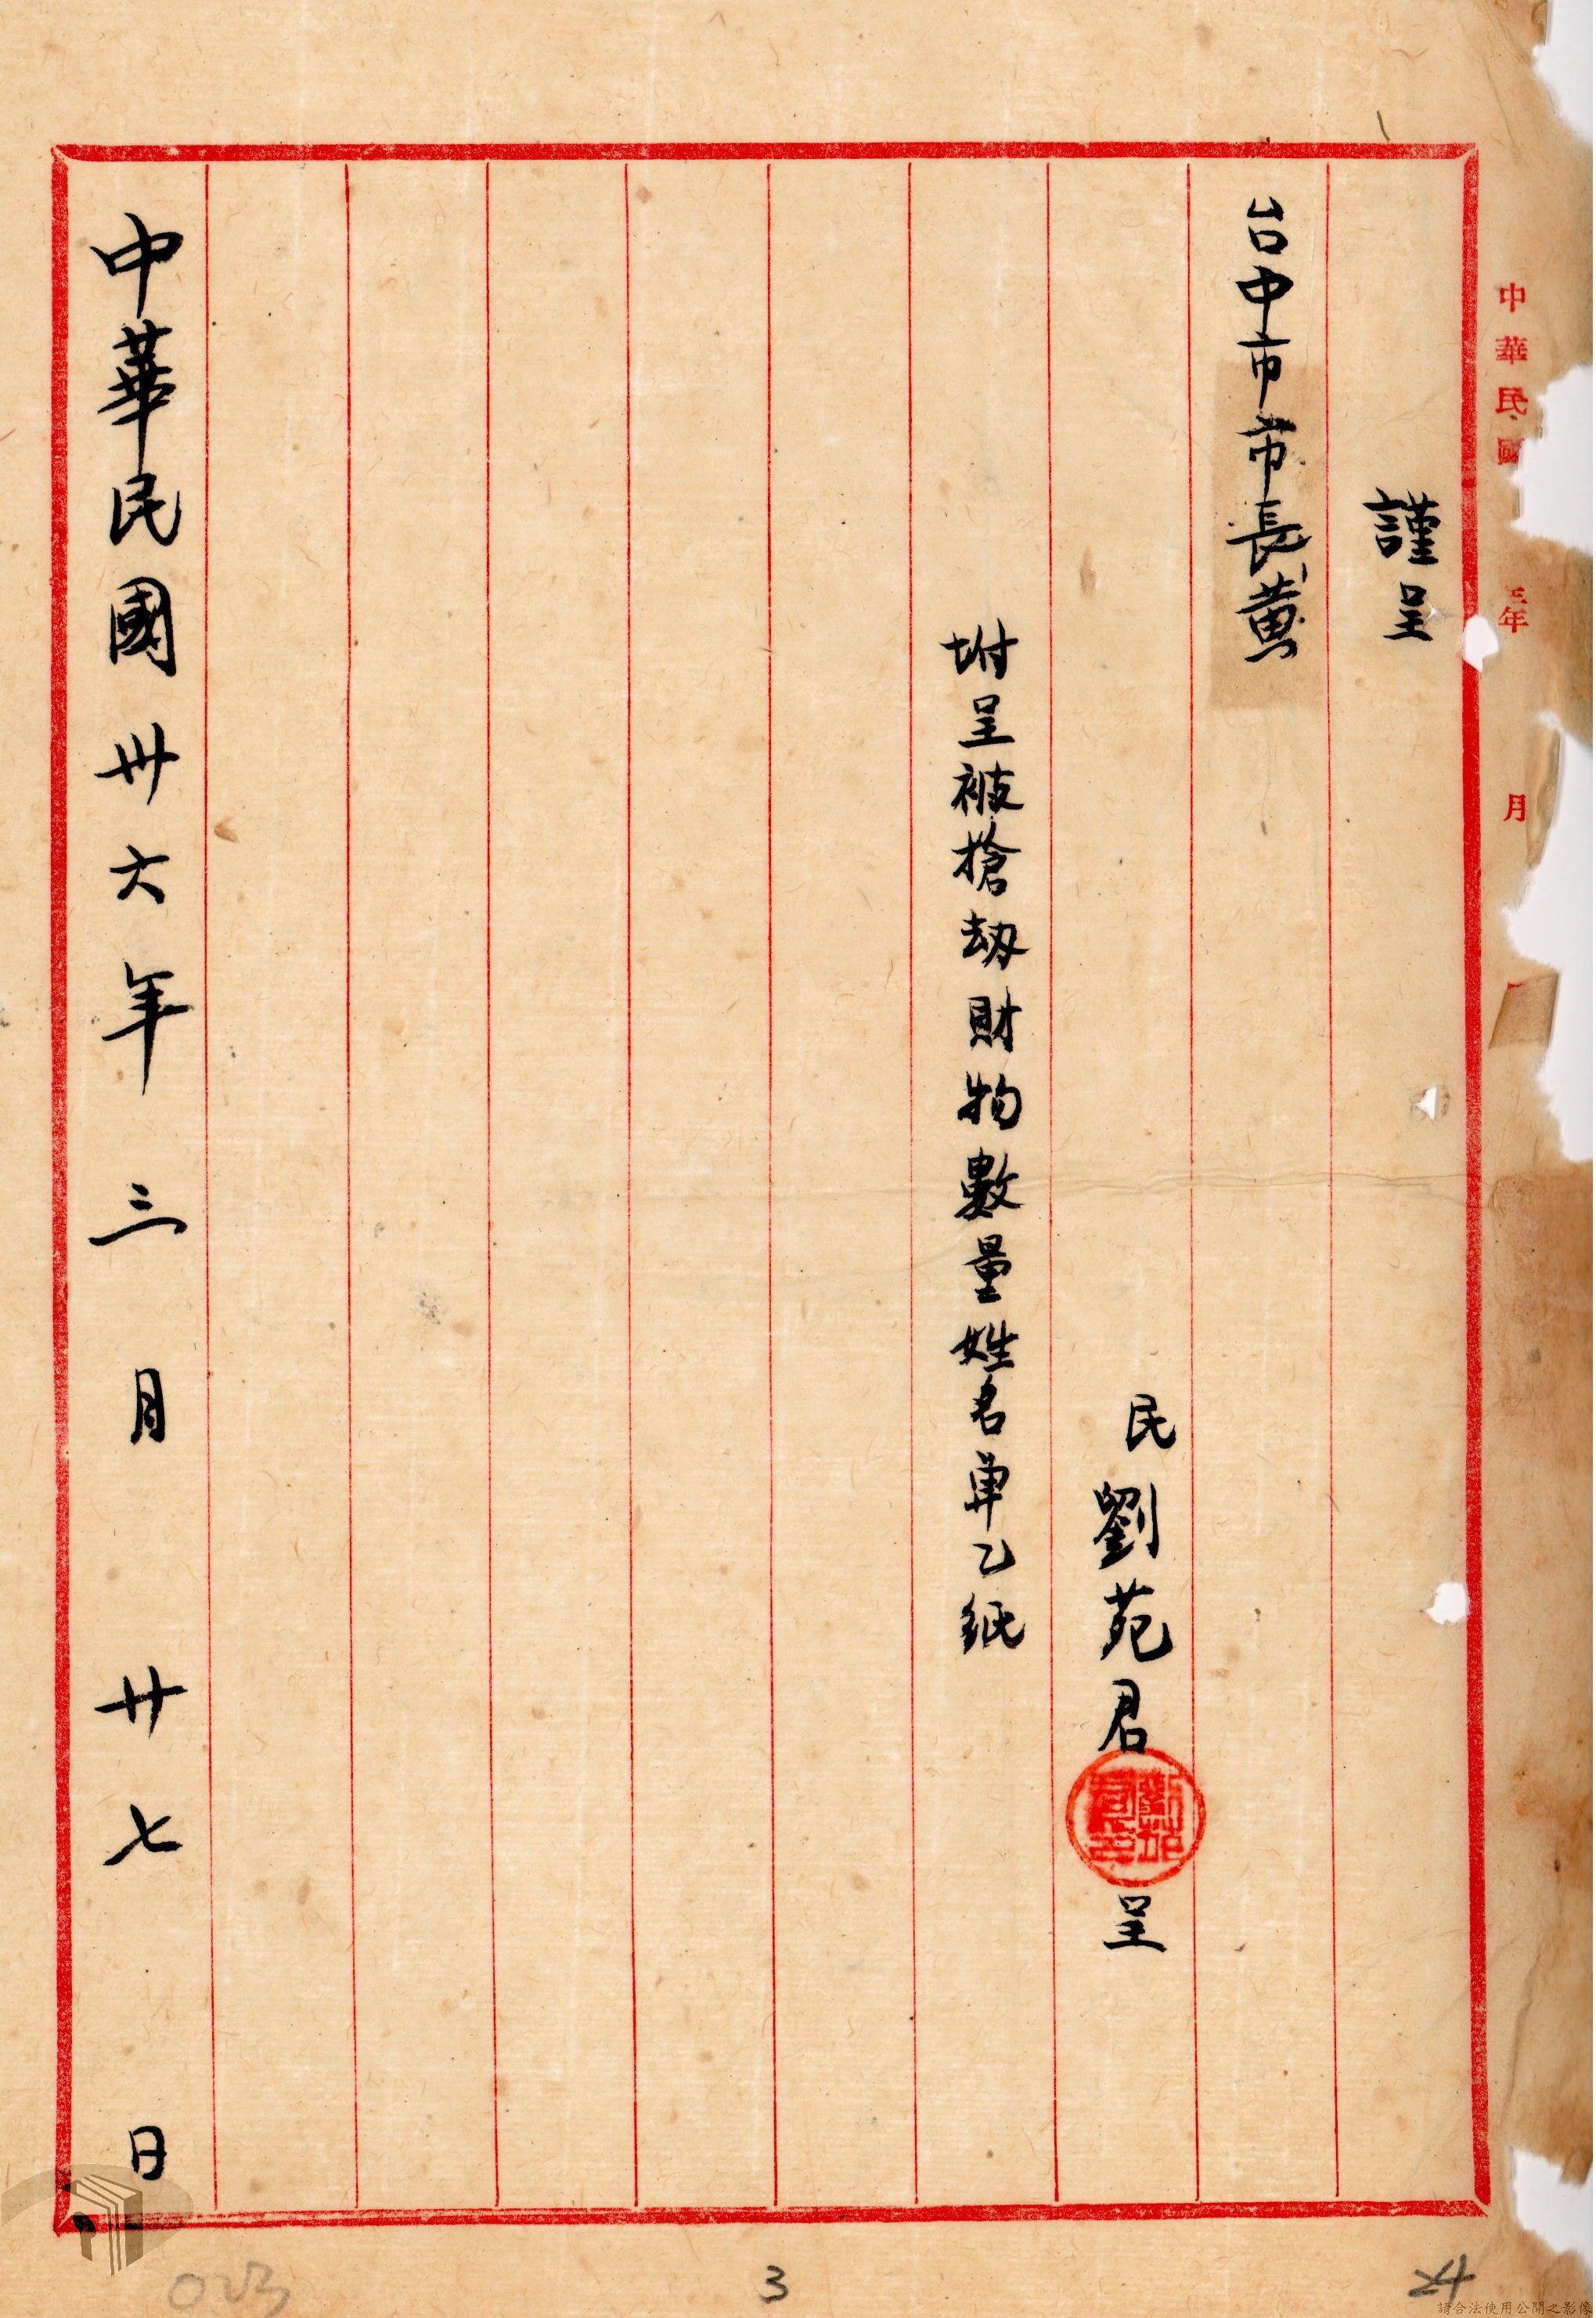 中華民國 年 月
謹呈
台中市市長黃
民 劉苑君 呈
坿呈被搶劫財物數量姓名單乙紙
中華民國卅六年三月廿七日
3
24
請合法使用公開之影像